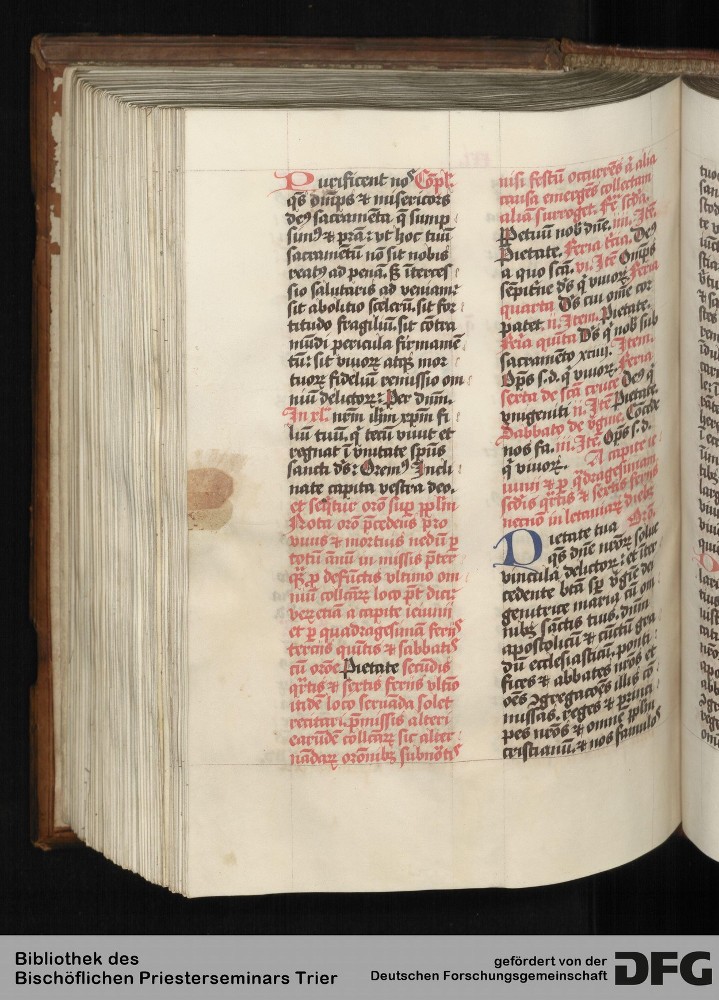 Purificent nos Cōpl.
qs̄ om̄ps & misericors
deꝰ sacramēta q̄ sump
simꝰ & prā: vt hoc tuū
sacramētū nō sit nobis
reatꝰ ad penā. S̄ īterces
sio salutaris ad veniam:
sit abolitio scelerū. sit for
titudo fragiliū. sit cōtra
mūdi pericula firmamē
tū: sit viuorꝝ atqꝫ mor
tuorꝝ fideliū remissio om
niū delictorꝝ: Per dn̄m.
In xl. nr̄m ih̄m xp̄m fi
liū tuū. q̄ tecū viuit et
regnat ī vnitate sp̄us
sancti ds̄: Oremꝰ Incli
nate capita vestra deo.
et seq̄tur orō sup pp̄lm
Nota orō p̄cedens pro
viuis & mortuis nedū p
totū ānū in missis p̄ter
p defūctis vltimo om
niū collcārꝝ loco pōt dici:
verꝫ etiā a capite ieiunii
et p quadragesimā feriis
terciis quītis & sabbatis
cū orōe Pietate secūdis
q̄rtis & sextis feriis vltīo
itidē loco seruāda solet
recitari. p̄missis alteri
earūdē collcārꝝ sic alter
nādarꝝ orōnibꝫ subnōtis
nisi festū occurrēs q̄ alia
causa emergēs collectam
aliā surroget. Fe scd̄a.
Petuū nob dn̄e. iii. Itē.
Pietate. Feria t̄cia. Deꝰ
a quo scā. vi. Itē Om̄ps
sēpitne ds̄ q̄ viuorꝝ Feria
quarta Ds̄ cui om̄e cor
patet. ii. Item. Pietate.
Feria quīta Ds̄ q̄ nob sub
sacramēto xciiii. Item.
Op̄s s. d. q̄ viuorꝝ. Feria
sexta de scā cruce Deꝰ q̄
vnigeniti ii. Itē Pietate.
Sabbato de v̄gīe. Cōcede
nos fa. iii. Itē. Op̄s s. d.
q̄ viuorꝝ. A capite ie
iunii & p q̄dragesimam
scd̄is q̄rtis & sextis feriis
necnō in letaniarꝝ diebꝫ
Pietate tua Orō.
qs̄ dn̄e nr̄orꝝ solue
vincula delictorꝝ: et īter
cedente btā sp̄ v̄gīe dei
genitrice maria cū om
nibꝫ sāctis tuis. dn̄m
apostolicū & cūctū gra
dū ecclesiasticū. ponti
fices & abbates nr̄os et
oēs ꝯgregacōes illis cō
missas. reges & princi
pes nr̄os & omnē pp̄lm
cristianū. & nos famulos
Bibliothek des
Bischöflichen Priesterseminars Trier
gefördert von der
Deutschen Forschungsgemeinschaft
DFG